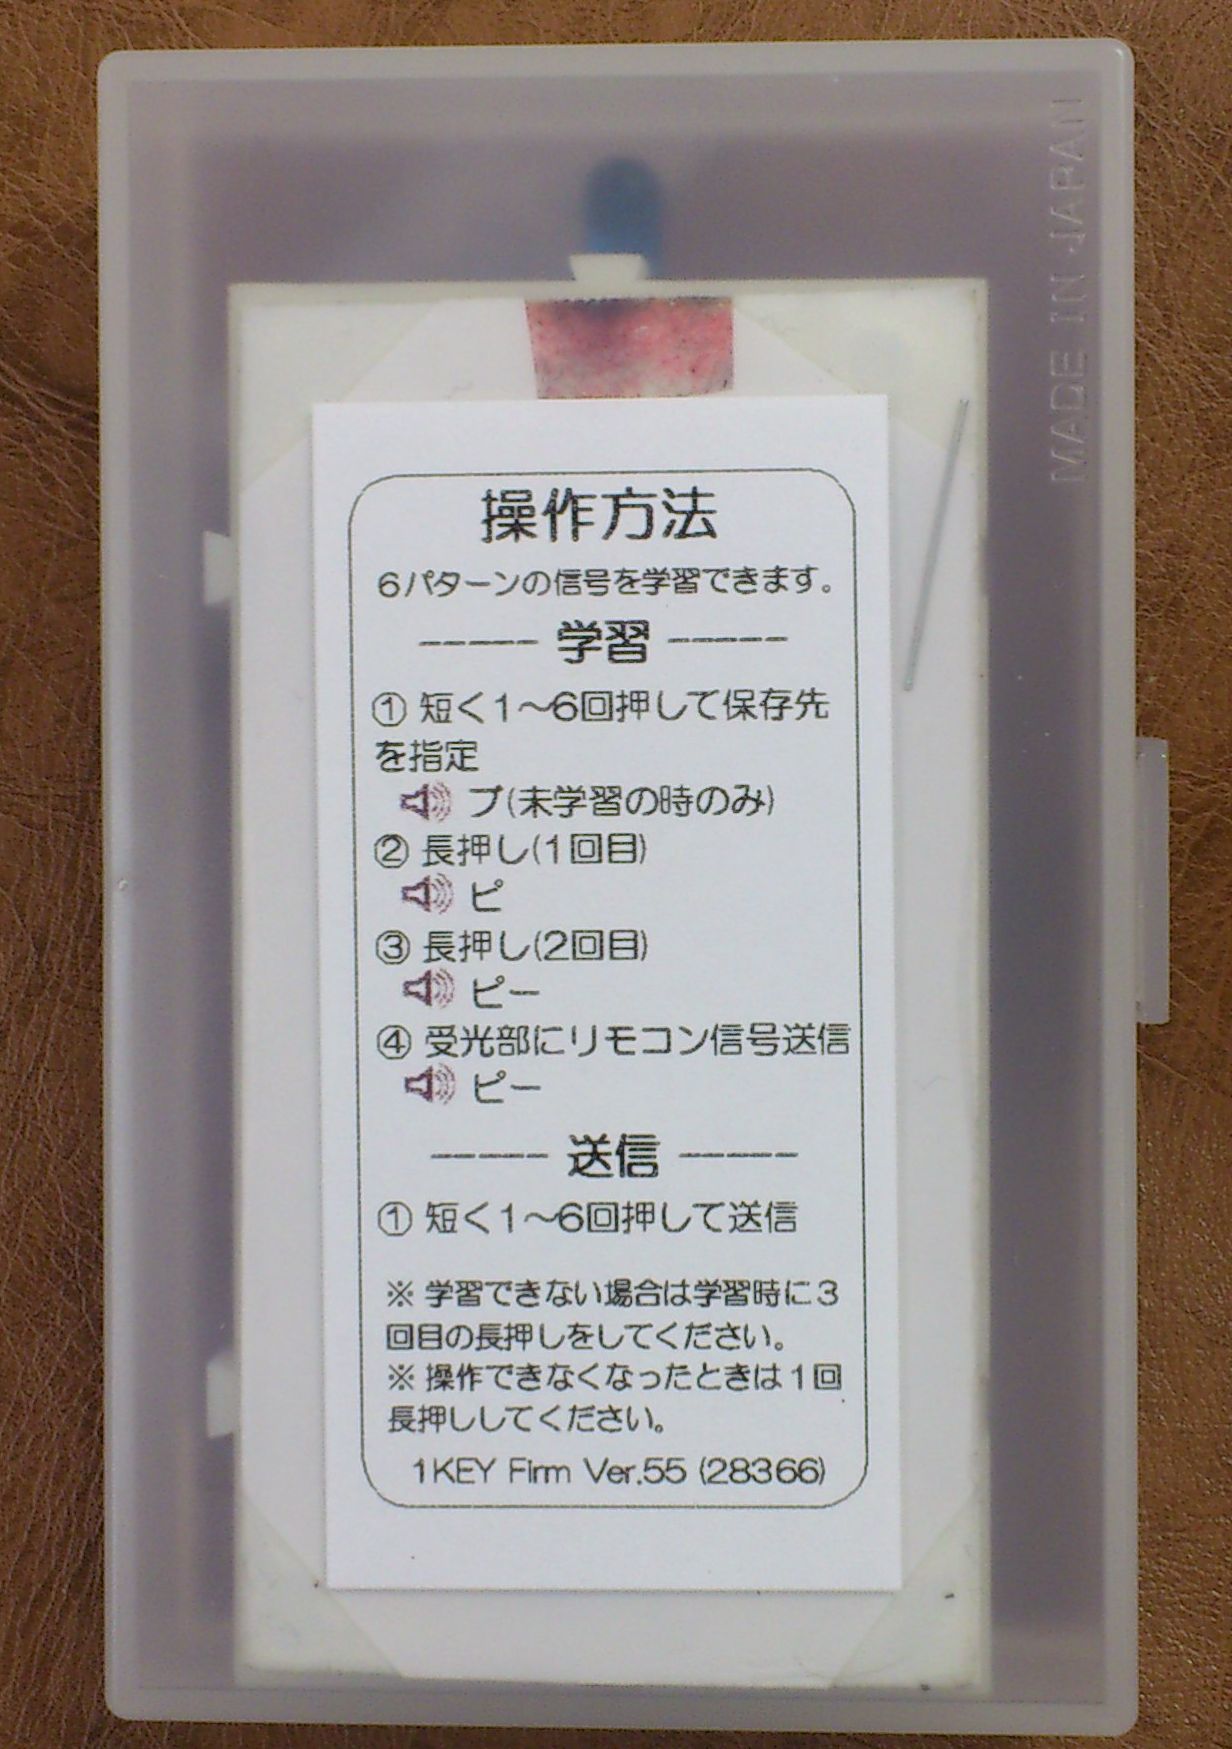 MADE IN JAPAN
操作方法
6パターンの信号を学習できます。
----- 学習 -----
① 短く1〜6回押して保存先
を指定
プ(未学習の時のみ)
② 長押し(1回目)
ピ
③ 長押し(2回目)
ピー
④ 受光部にリモコン信号送信
ピー
----- 送信 -----
① 短く1〜6回押して送信
※ 学習できない場合は学習時に3
回目の長押しをしてください。
※ 操作できなくなったときは1回
長押ししてください。
1KEY Firm Ver.55 (28366)